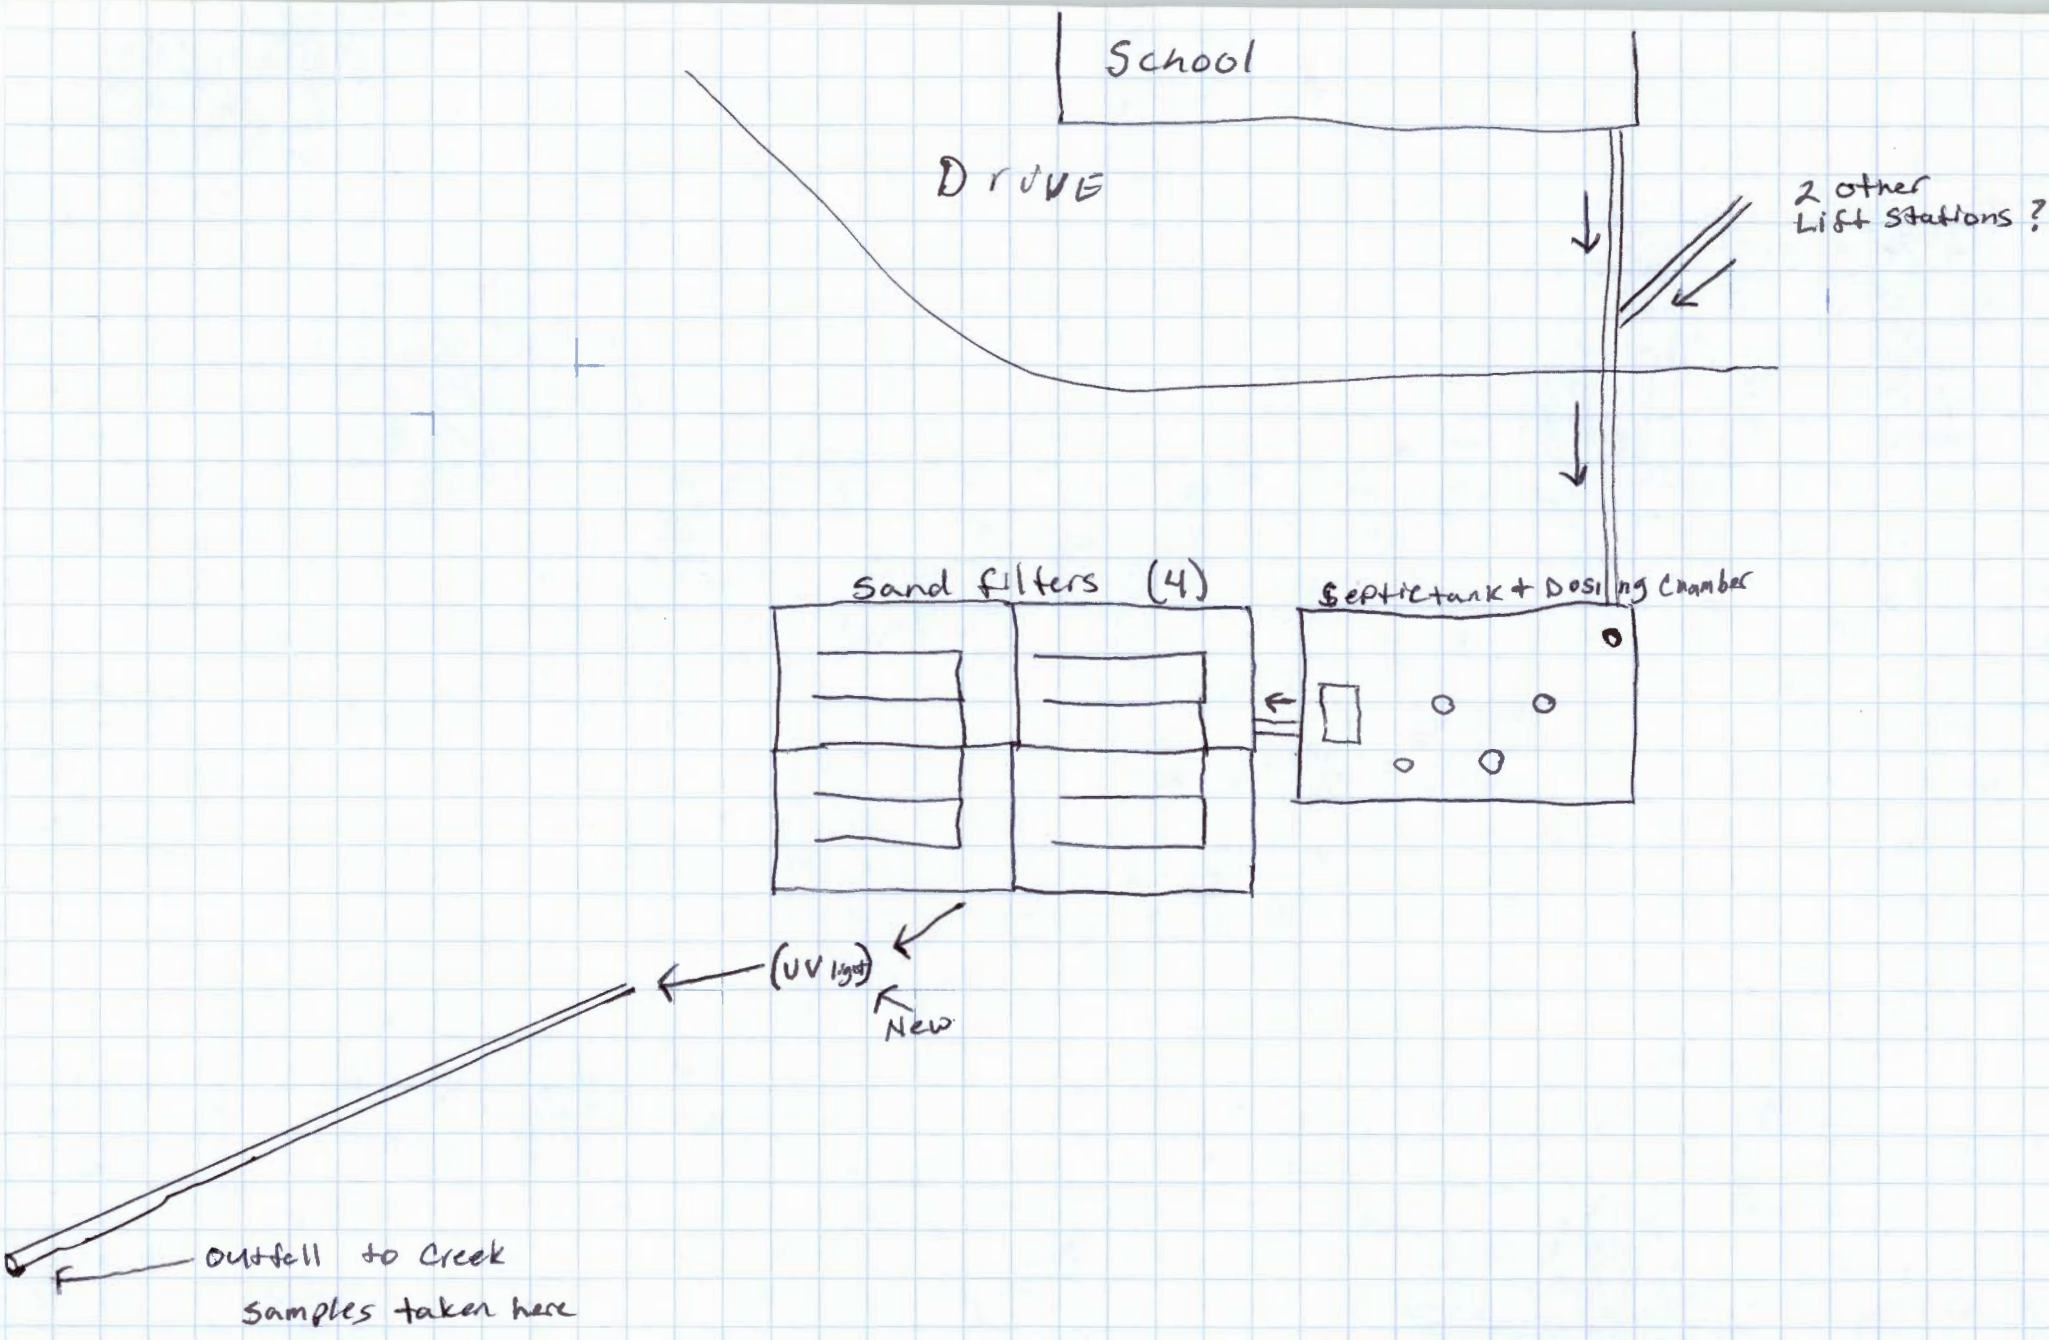 School
DrIVE
2 other
Lift Stations ?
Sand filters (4)
Septic tank + Dosing Chamber
(UV light)
New
Outfall to Creek
Samples taken here